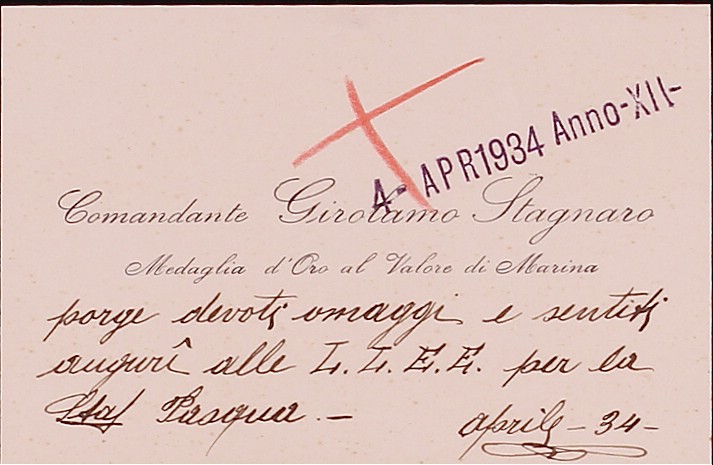 4 - APR 1934 Anno - XII -
Comandante Girolamo Stagnaro
Medaglia d'Oro al Valore di Marina
porge devoti omaggi e sentiti
augurî alle L.L.E.E. per la
Pasqua. —
aprile - 34 -